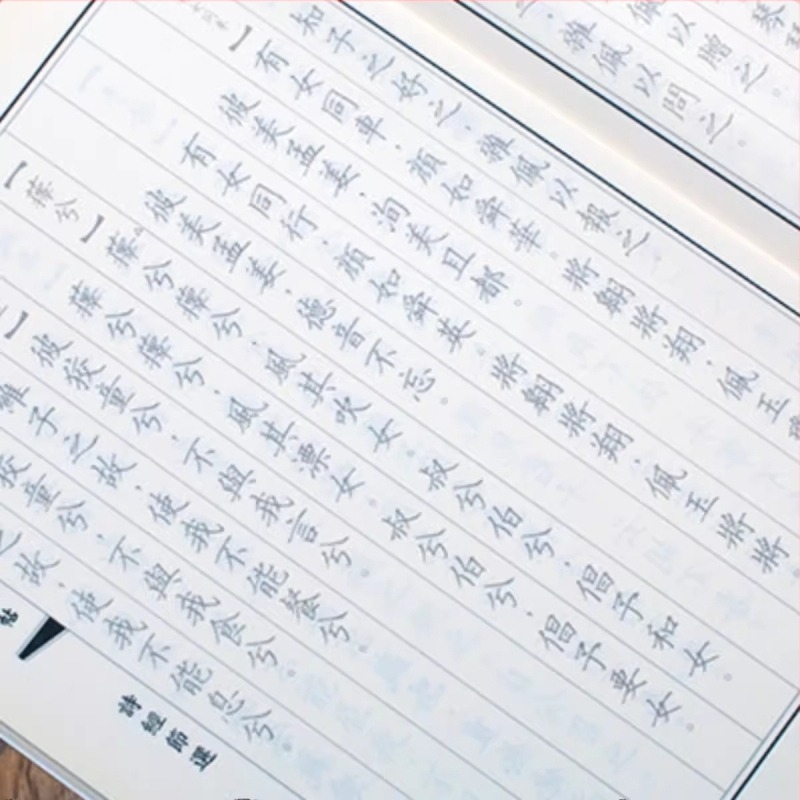 琴
佩以贈之。
雜佩以問之。
知子之好之，雜佩以報之
】有女同車，顏如舜華。將翱將翔，佩玉
彼美孟姜，洵美且都。
有女同行，顏如舜英。將翱將翔，佩玉將將
彼美孟姜，德音不忘。
【蘀兮】蘀兮蘀兮，風其吹女。叔兮伯兮，倡予和女。
蘀兮蘀兮，風其漂女。叔兮伯兮，倡予要女。
】彼狡童兮，不與我言兮。
維子之故，使我不能餐兮。
狡童兮，不與我食兮。
之故，使我不能息兮。
帖
詩經節選